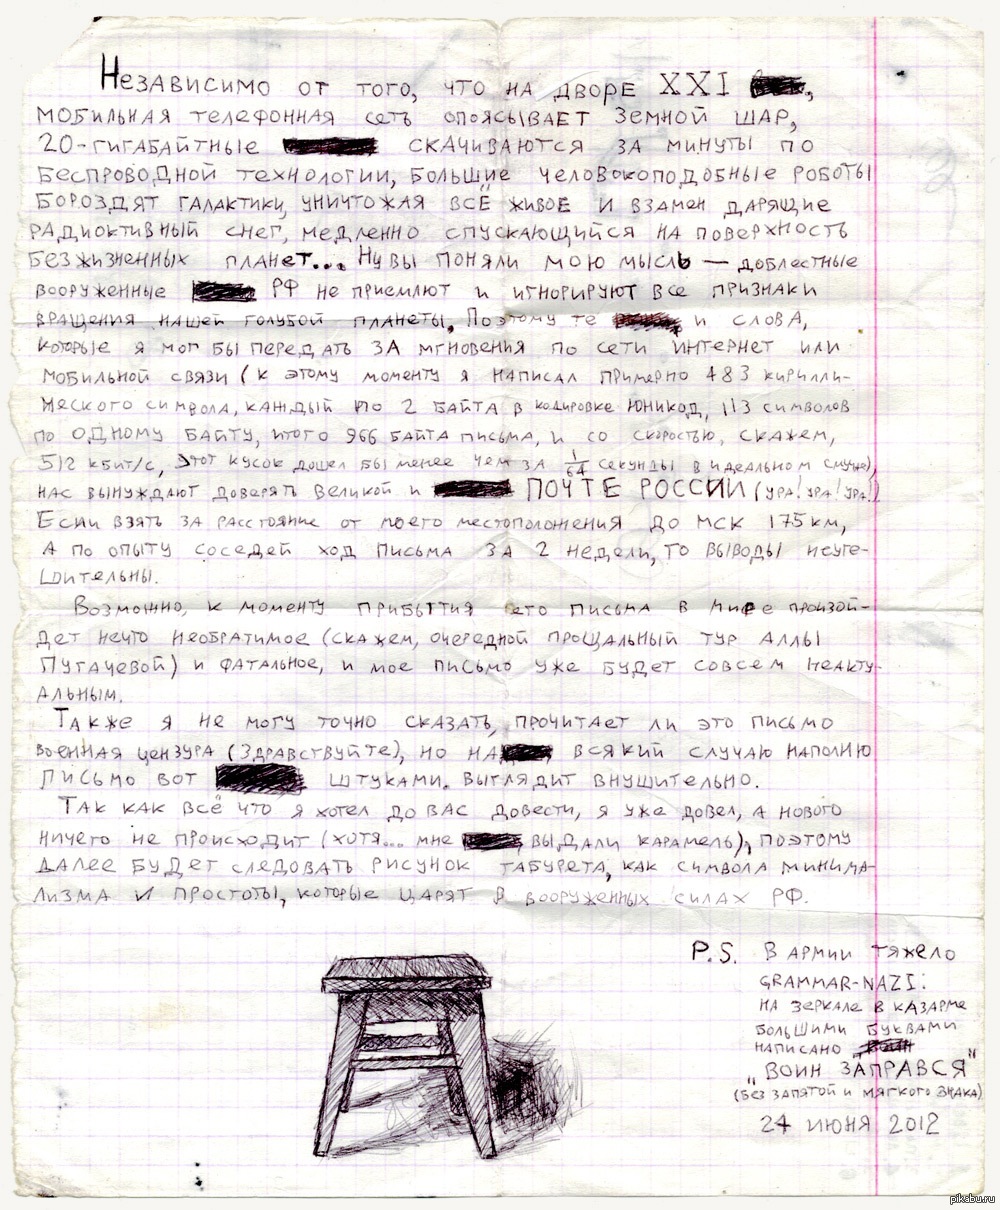 Независимо от того, что на дворе XXI
мобильная телефонная сеть опоясывает Земной шар,
20-гигабайтные скачиваются за минуты по
беспроводной технологии, большие человокоподобные роботы
бороздят галактики, уничтожая всё живое и взамен дарящие
радиоактивный снег, медленно спускающийся на поверхность
безжизненных планет... Ну вы поняли мою мысль — доблестные
вооруженные РФ не приемлют и игнорируют все признаки
вращения нашей голубой планеты. Поэтому те и слова,
которые я мог бы передать за мгновения по сети интернет или
мобильной связи (к этому моменту я написал примерно 483 кирилли-
ческого символа, каждый по 2 байта в кодировке Юникод, 113 символов
по одному байту, итого 966 байта письма, и со скоростью, скажем,
512 кбит/с, этот кусок дошел бы менее чем за 1/64 секунды в идеальном случае),
нас вынуждают доверять великой и ПОЧТЕ РОССИИ (ура! ура! ура!)
Если взять за расстояние от моего местоположения до мск 175км,
а по опыту соседей ход письма за 2 недели, то выводы неуте-
шительны.
Возможно, к моменту прибытия его письма в мире произой-
дет нечто необратимое (скажем, очередной прощальный тур Аллы
Пугачевой) и фатальное, и мое письмо уже будет совсем неакту-
альным.
Также я не могу точно сказать, прочитает ли это письмо
военная цензура (Здравствуйте), но на всякий случаю наполню
письмо вот штуками. Выглядит внушительно.
Так как всё что я хотел до вас довести, я уже довел, а нового
ничего не происходит (хотя... мне выдали карамель), поэтому
далее будет следовать рисунок табурета, как символа минима-
лизма и простоты, которые царят в вооруженных силах РФ.
P.S. В армии тяжело
GRAMMAR-NAZI:
на зеркале в казарме
большими буквами
написано
„ВОИН ЗАПРАВСЯ"
(без запятой и мягкого знака)
24 июня 2012
pikabu.ru